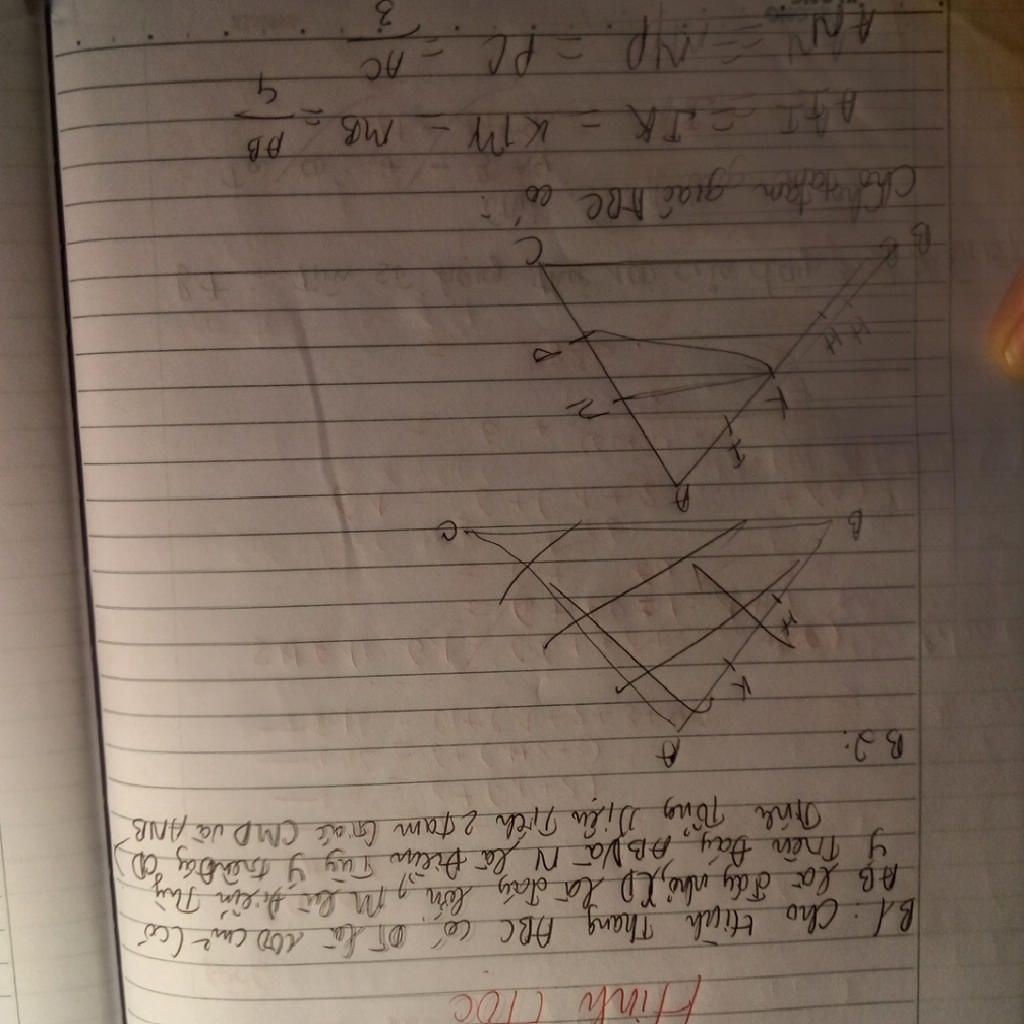 Hình Học
B1: Cho Hình Thang ABC có DT là 100 cm² (có
AB là đáy nhỏ, CD là đáy lớn, M là Điểm Tùy
ý Trên Đáy AB Và N là Điểm Tùy ý trên Đáy CD)
Tính Tổng Diện Tích 2 tam Giác CMD và ANB
B2:
A
K
H
B
C
A
I
K
N
P
H
B
C
Cho tam giác ABC có:
AI = IK = KM = MB = AB/4
AN = NP = PC = AC/3